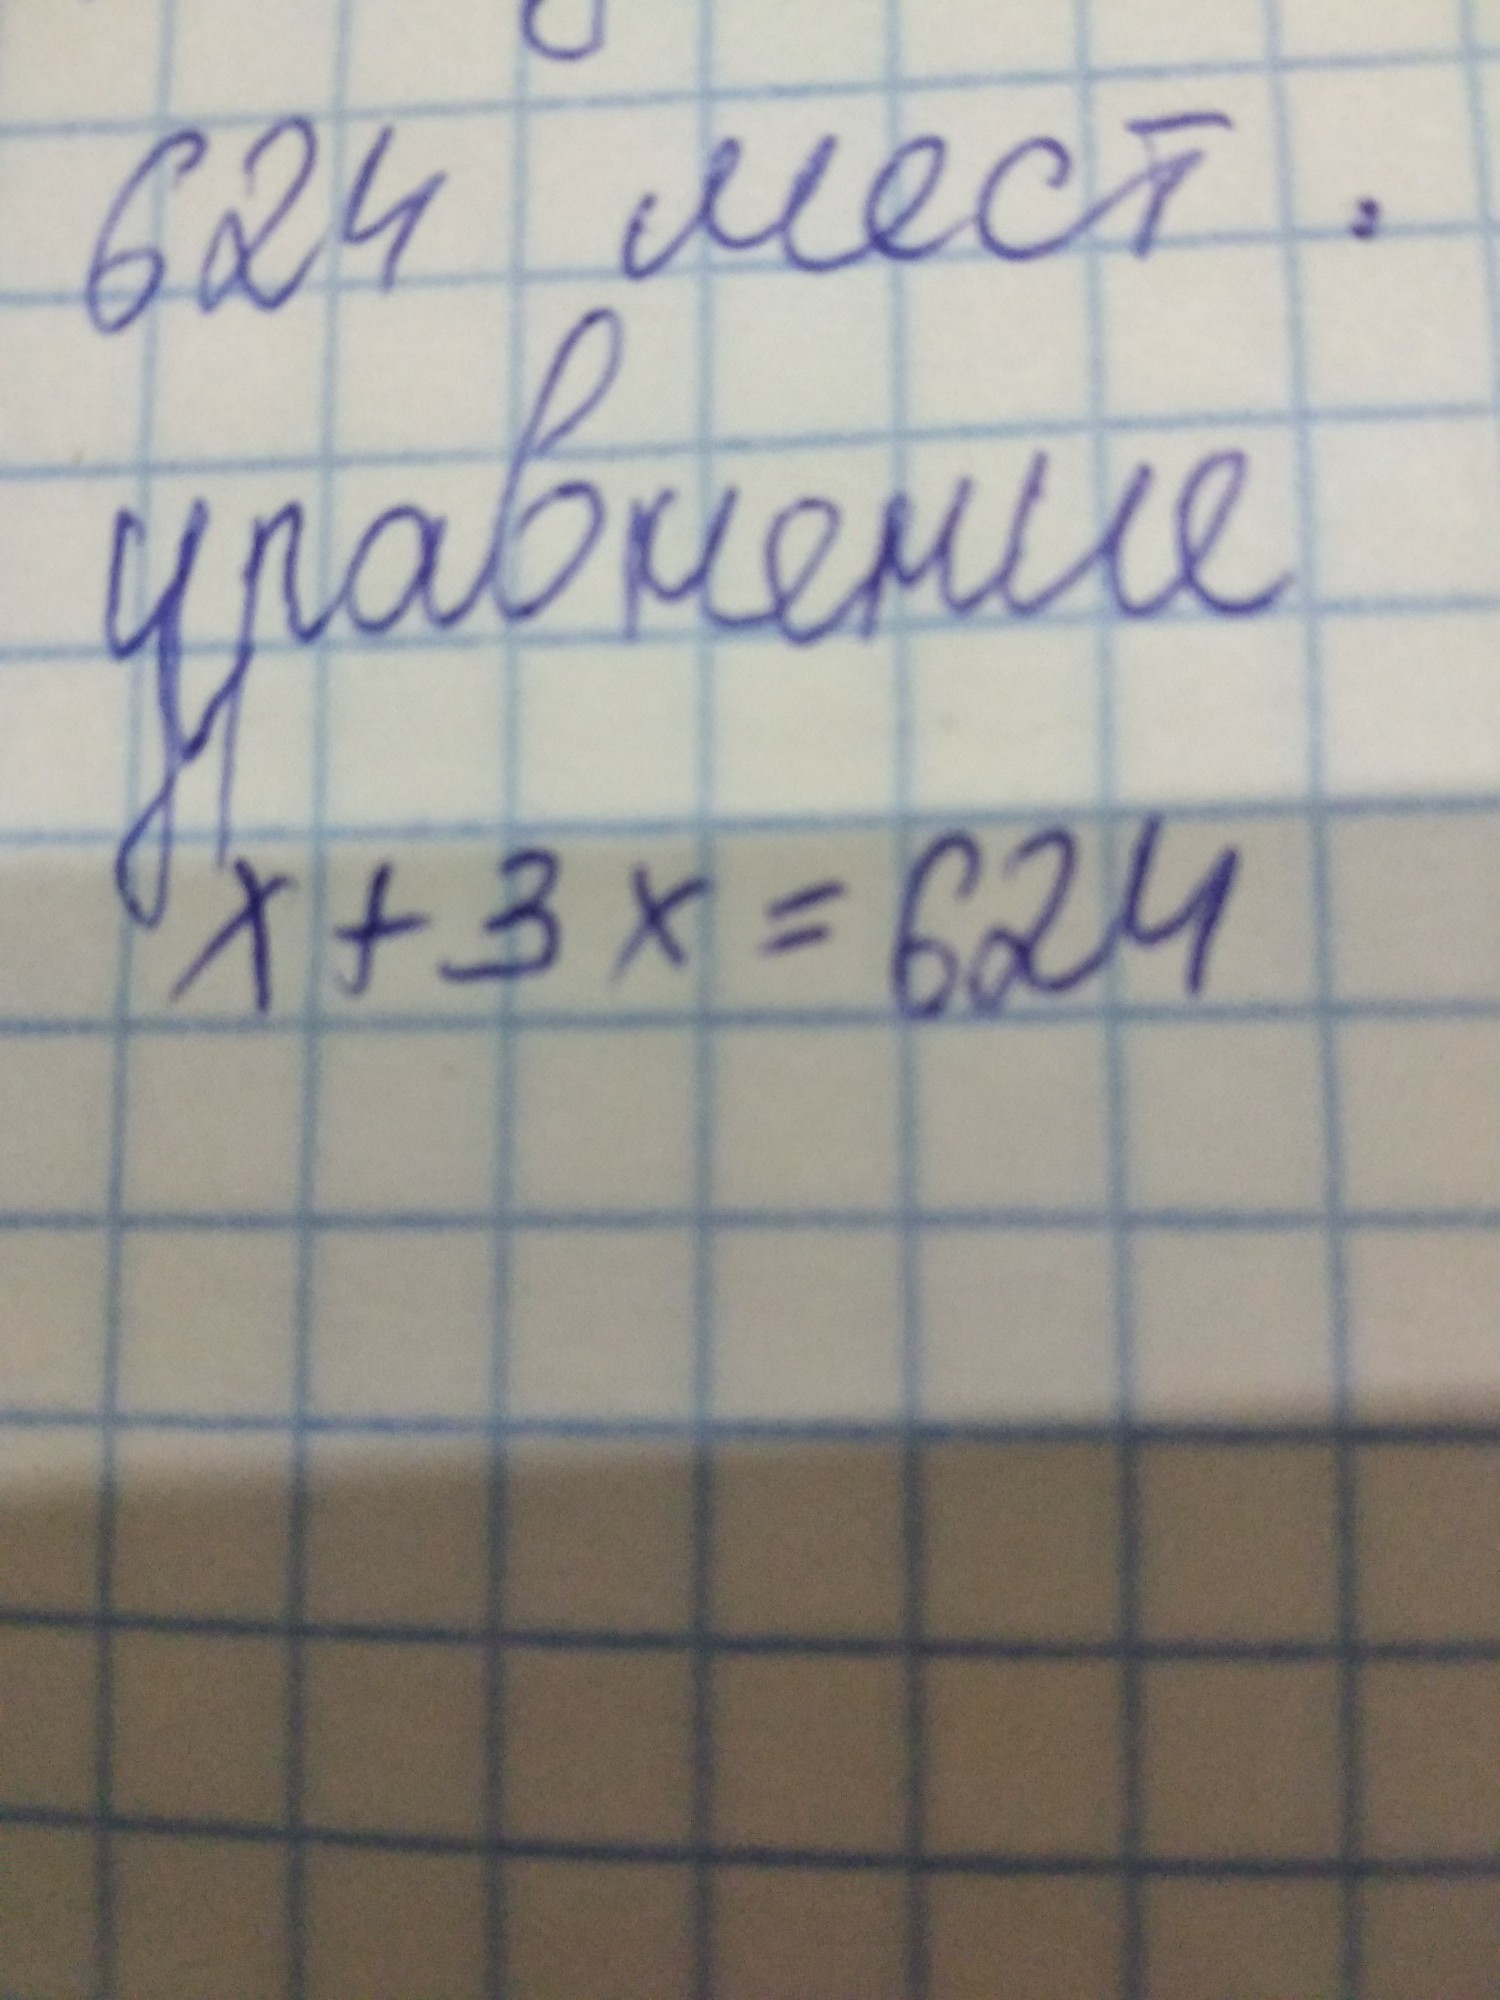 624 мест.
уравнение
x+3x=624